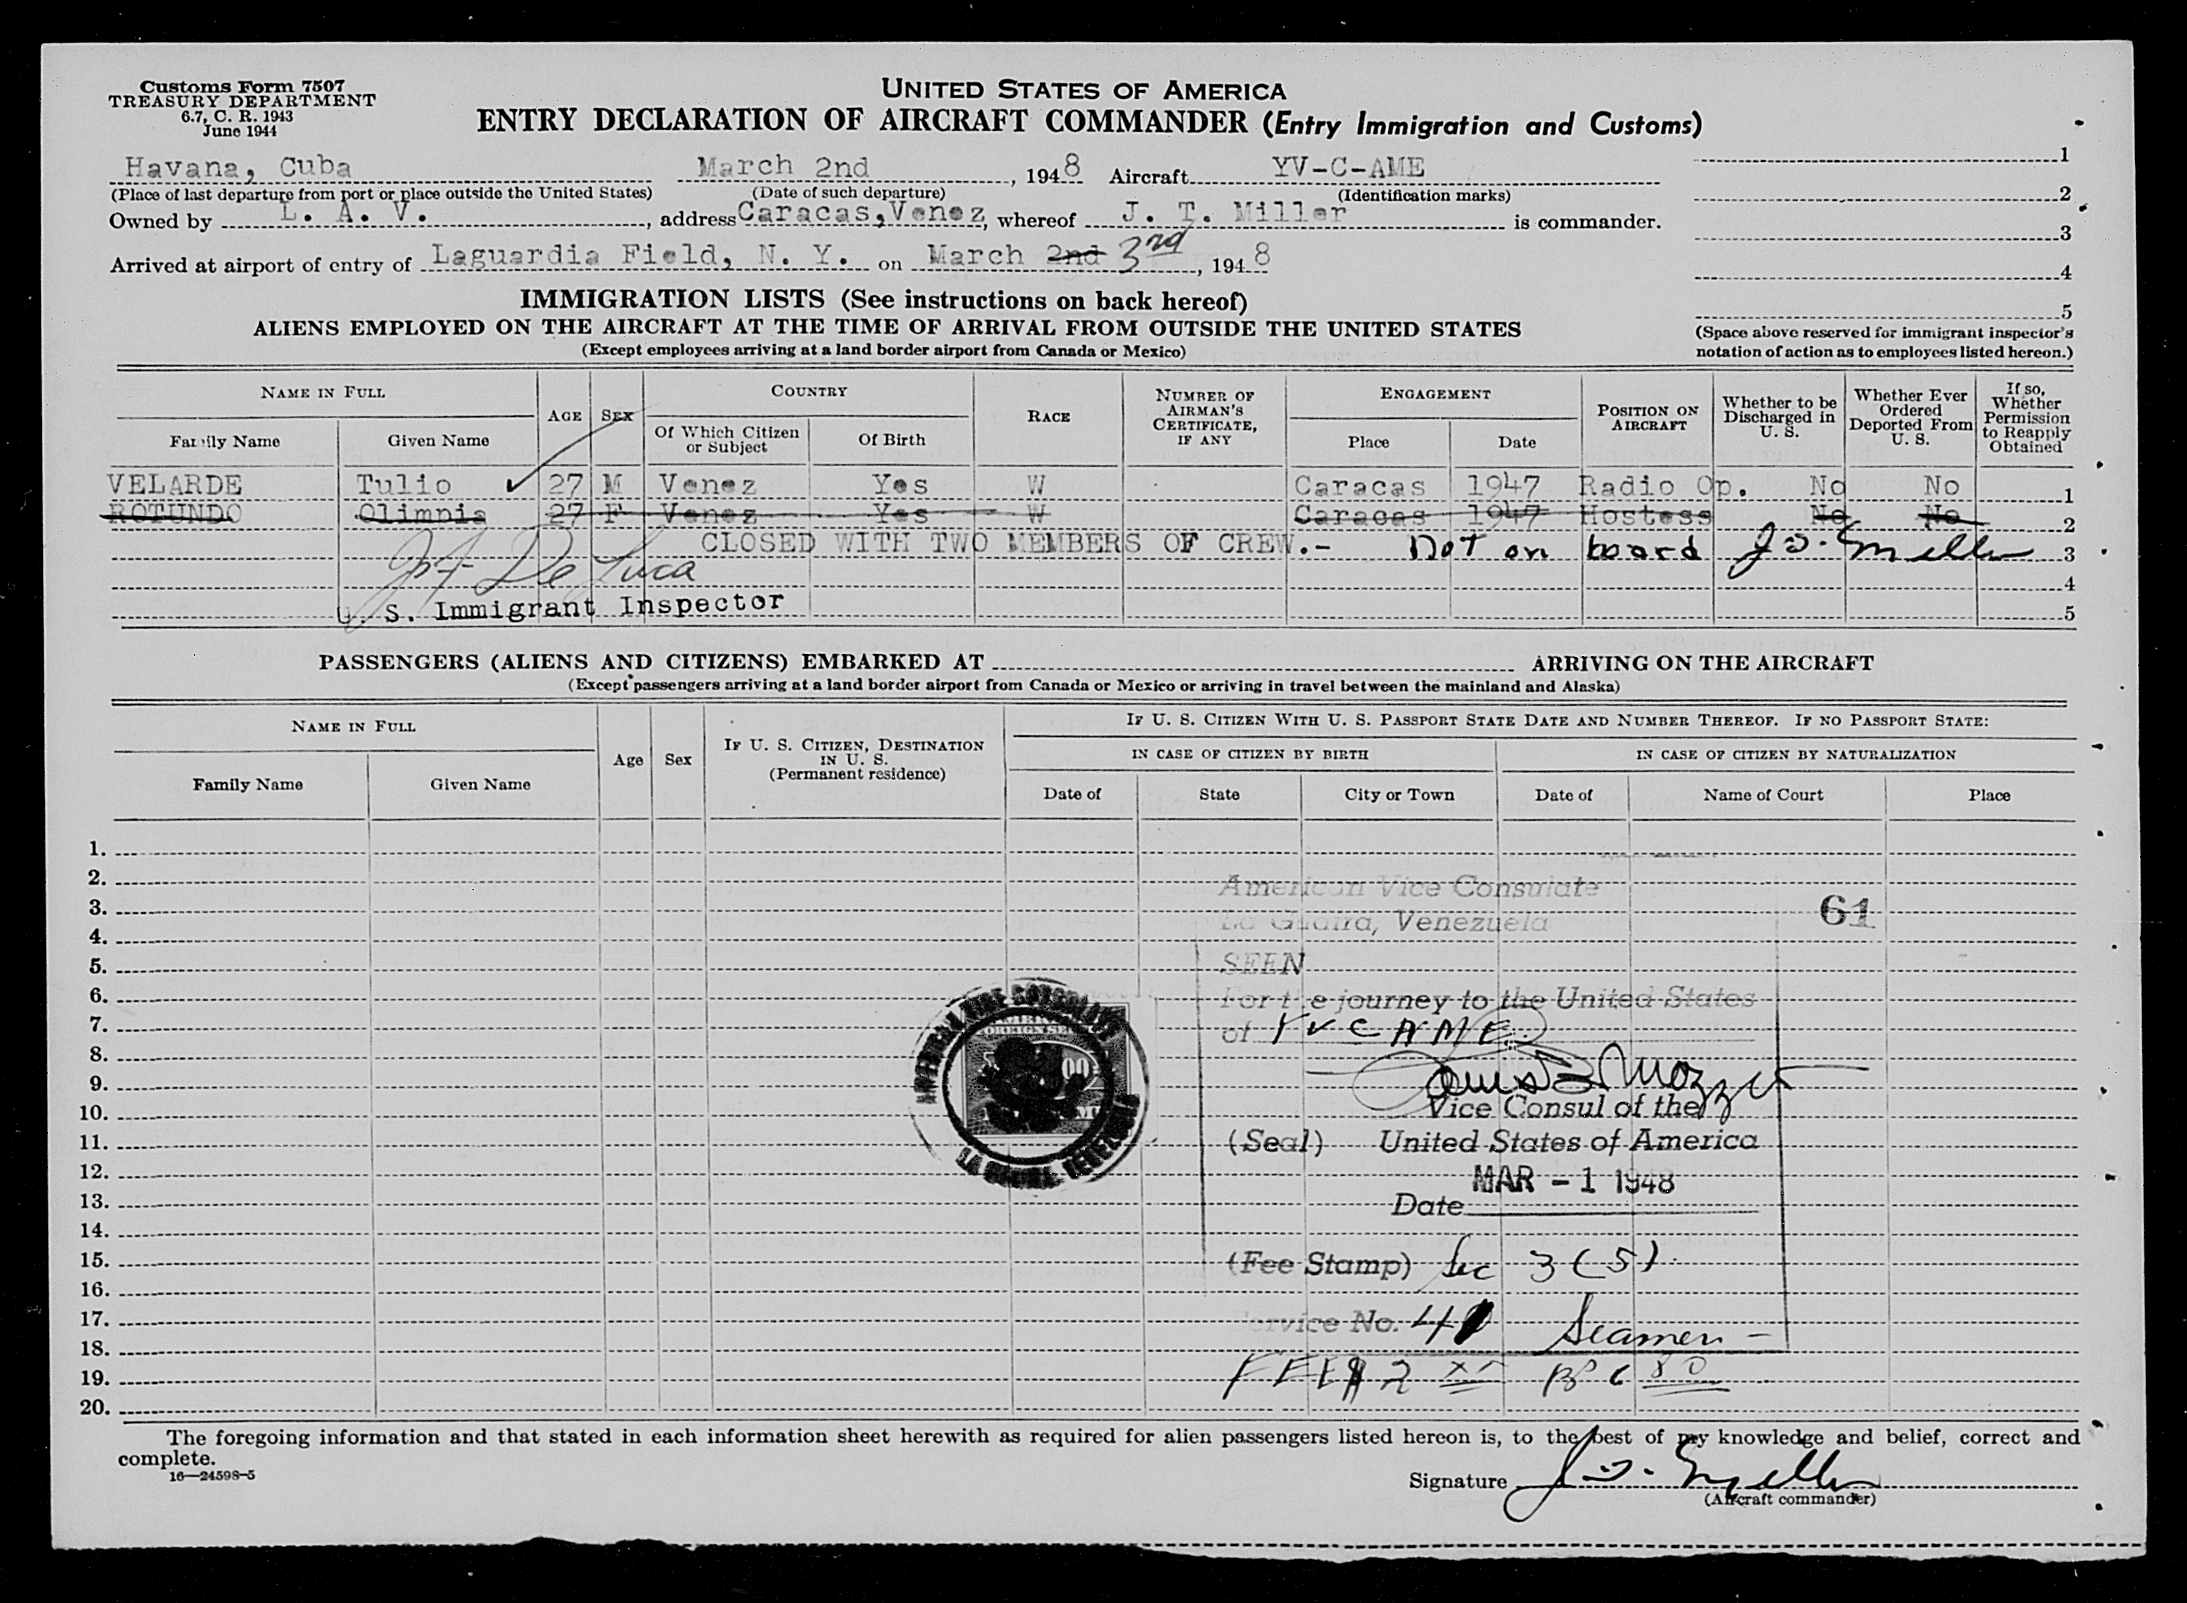 Customs Form 7507
TREASURY DEPARTMENT
6.7, C. R. 1943
June 1944
UNITED STATES OF AMERICA
ENTRY DECLARATION OF AIRCRAFT COMMANDER (Entry Immigration and Customs)
Havana, Cuba March 2nd, 1948 Aircraft YV-C-AME
(Place of last departure from port or place outside the United States) (Date of such departure) (Identification marks)
Owned by L. A. V., address Caracas, Venez, whereof J. T. Miller is commander.
Arrived at airport of entry of Laguardia Field, N. Y. on March 2nd 3rd, 1948
1
2
3
4
5
(Space above reserved for immigrant inspector's
notation of action as to employees listed hereon.)
IMMIGRATION LISTS (See instructions on back hereof)
ALIENS EMPLOYED ON THE AIRCRAFT AT THE TIME OF ARRIVAL FROM OUTSIDE THE UNITED STATES
(Except employees arriving at a land border airport from Canada or Mexico)
NAME IN FULL AGE SEX COUNTRY RACE NUMBER OF AIRMAN'S CERTIFICATE, IF ANY ENGAGEMENT POSITION ON AIRCRAFT Whether to be Discharged in U. S. Whether Ever Ordered Deported From U. S. If so, Whether Permission to Reapply Obtained
Family Name Given Name Of Which Citizen or Subject Of Birth Place Date
VELARDE Tulio 27 M Venez Yes W Caracas 1947 Radio Op. No No 1
ROTUNDO Olimpia 27 F Venez Yes W Caracas 1947 Hostess No No 2
CLOSED WITH TWO MEMBERS OF CREW.- Not on board J. T. Miller 3
De Luca 4
U. S. Immigrant Inspector 5
PASSENGERS (ALIENS AND CITIZENS) EMBARKED AT ARRIVING ON THE AIRCRAFT
(Except passengers arriving at a land border airport from Canada or Mexico or arriving in travel between the mainland and Alaska)
NAME IN FULL Age Sex IF U. S. CITIZEN, DESTINATION IN U. S. (Permanent residence) IF U. S. CITIZEN WITH U. S. PASSPORT STATE DATE AND NUMBER THEREOF. IF NO PASSPORT STATE:
IN CASE OF CITIZEN BY BIRTH IN CASE OF CITIZEN BY NATURALIZATION
Family Name Given Name Date of State City or Town Date of Name of Court Place
1.
2. American Vice Consulate
3. La Guaira, Venezuela 61
4.
5. SEEN
6. For the journey to the United States
7. of YV C AME
8.
9.
10. Vice Consul of the
11. (Seal) United States of America
12. MAR - 1 1948
13. Date
14.
15. (Fee Stamp) Sec 3 (5).
16.
17. Service No. 41 Seamen -
18.
19.
20.
AMERICAN VICE CONSULATE
LA GUAIRA, VENEZUELA
The foregoing information and that stated in each information sheet herewith as required for alien passengers listed hereon is, to the best of my knowledge and belief, correct and
complete.
16—24598-5
Signature J. T. Miller
(Aircraft commander)